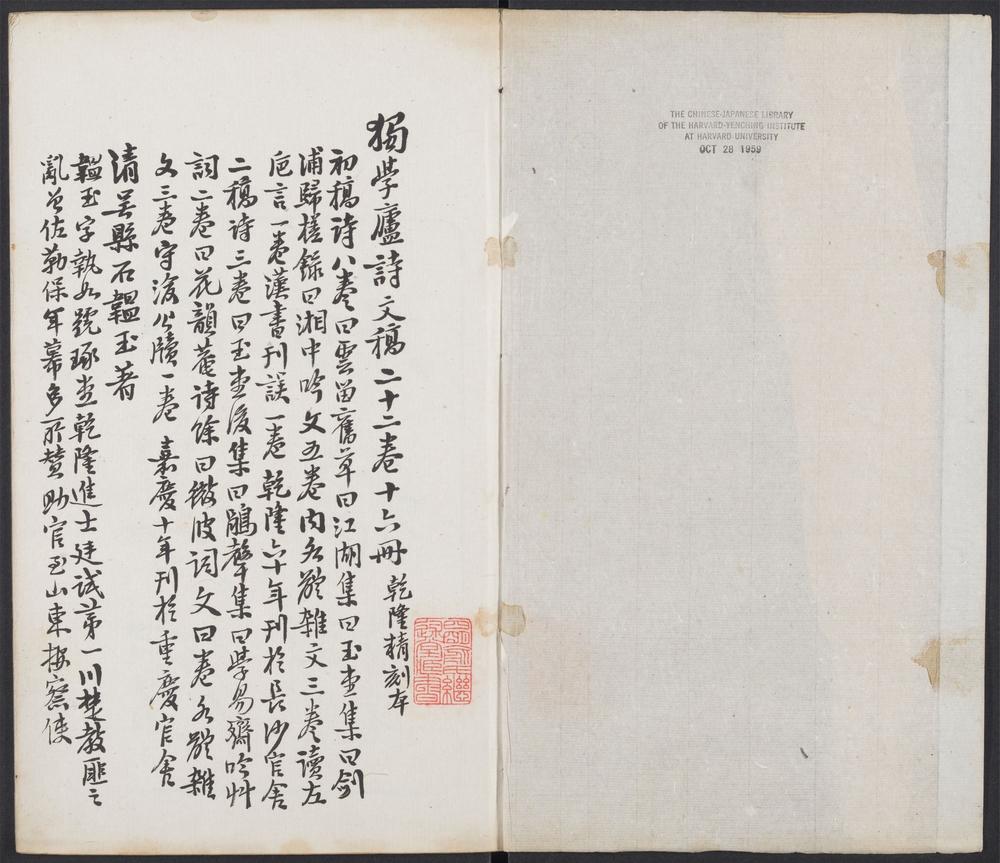 THE CHINESE-JAPANESE LIBRARY
OF THE HARVARD-YENCHING INSTITUTE
AT HARVARD UNIVERSITY
OCT 28 1959
獨學廬詩文稿二十二卷十六冊 乾隆精刻本
初稿詩八卷曰雲留舊草曰江湖集曰玉堂集曰劍
浦歸槎錄曰湘中吟文五卷内分體雜文三卷讀左
巵言一卷漢書刊誤一卷乾隆六十年刊於長沙官舍
二稿詩三卷曰玉堂後集曰鵑聲集曰學易齋吟艸
詞二卷曰花韻菴詩餘曰微波詞文曰卷分體雜
文三卷守渝公牘一卷 嘉慶十年刊於重慶官舍
清吳縣石韞玉著
韞玉字執如號琢堂乾隆進士廷試第一川楚教匪之
亂曾佐勒保軍幕多所贊助官至山東按察使